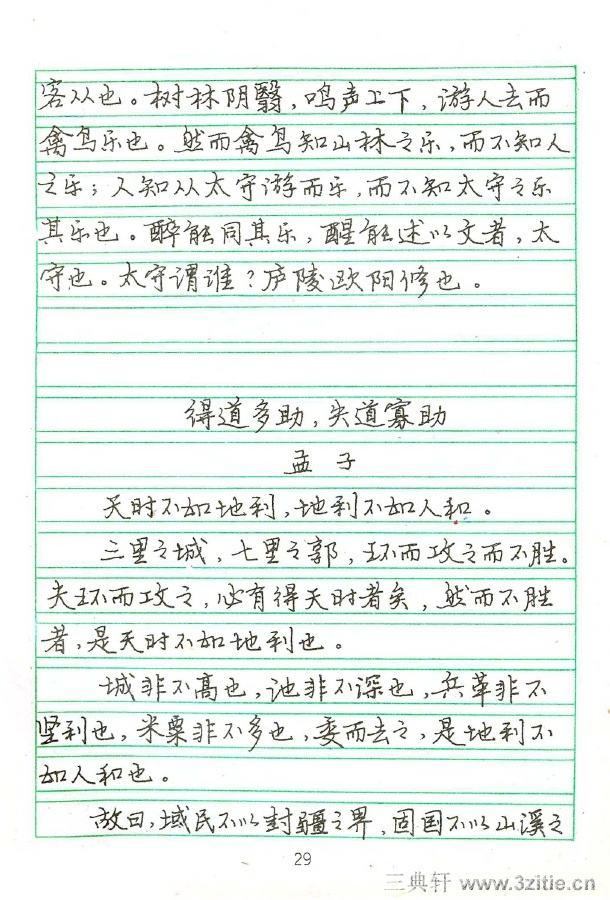 客从也。树林阴翳，鸣声上下，游人去而
禽鸟乐也。然而禽鸟知山林之乐，而不知人
之乐；人知从太守游而乐，而不知太守之乐
其乐也。醉能同其乐，醒能述以文者，太
守也。太守谓谁？庐陵欧阳修也。
得道多助，失道寡助
孟子
天时不如地利，地利不如人和。
三里之城，七里之郭，环而攻之而不胜。
夫环而攻之，必有得天时者矣，然而不胜
者，是天时不如地利也。
城非不高也，池非不深也，兵革非不
坚利也，米粟非不多也，委而去之，是地利不
如人和也。
故曰，域民不以封疆之界，固国不以山溪之
29
三典轩 www.3zitie.cn